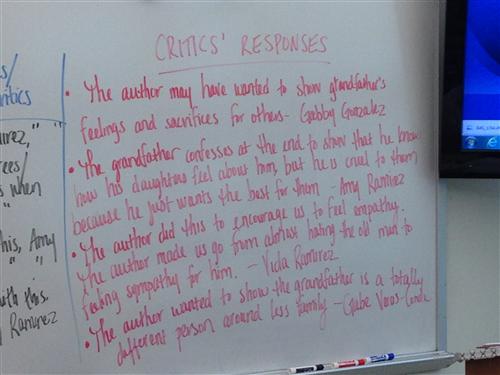 CRITICS' RESPONSES
• The author may have wanted to show grandfather's
feelings and sacrifices for others - Gabby Gonzalez
• The grandfather confesses at the end to show that he know
how his daughters feel about him, but he is cruel to them
because he just wants the best for them - Amy Ramirez
• The author did this to encourage us to feel empathy.
The author made us go from almost hating the old man to
feeling sympathy for him. - Vida Ramirez
• The author wanted to show the grandfather is a totally
different person around less family - Gabe
s/
ritics
irez,"
rees/
s when
"
his, Amy
"
with this.
Ramirez